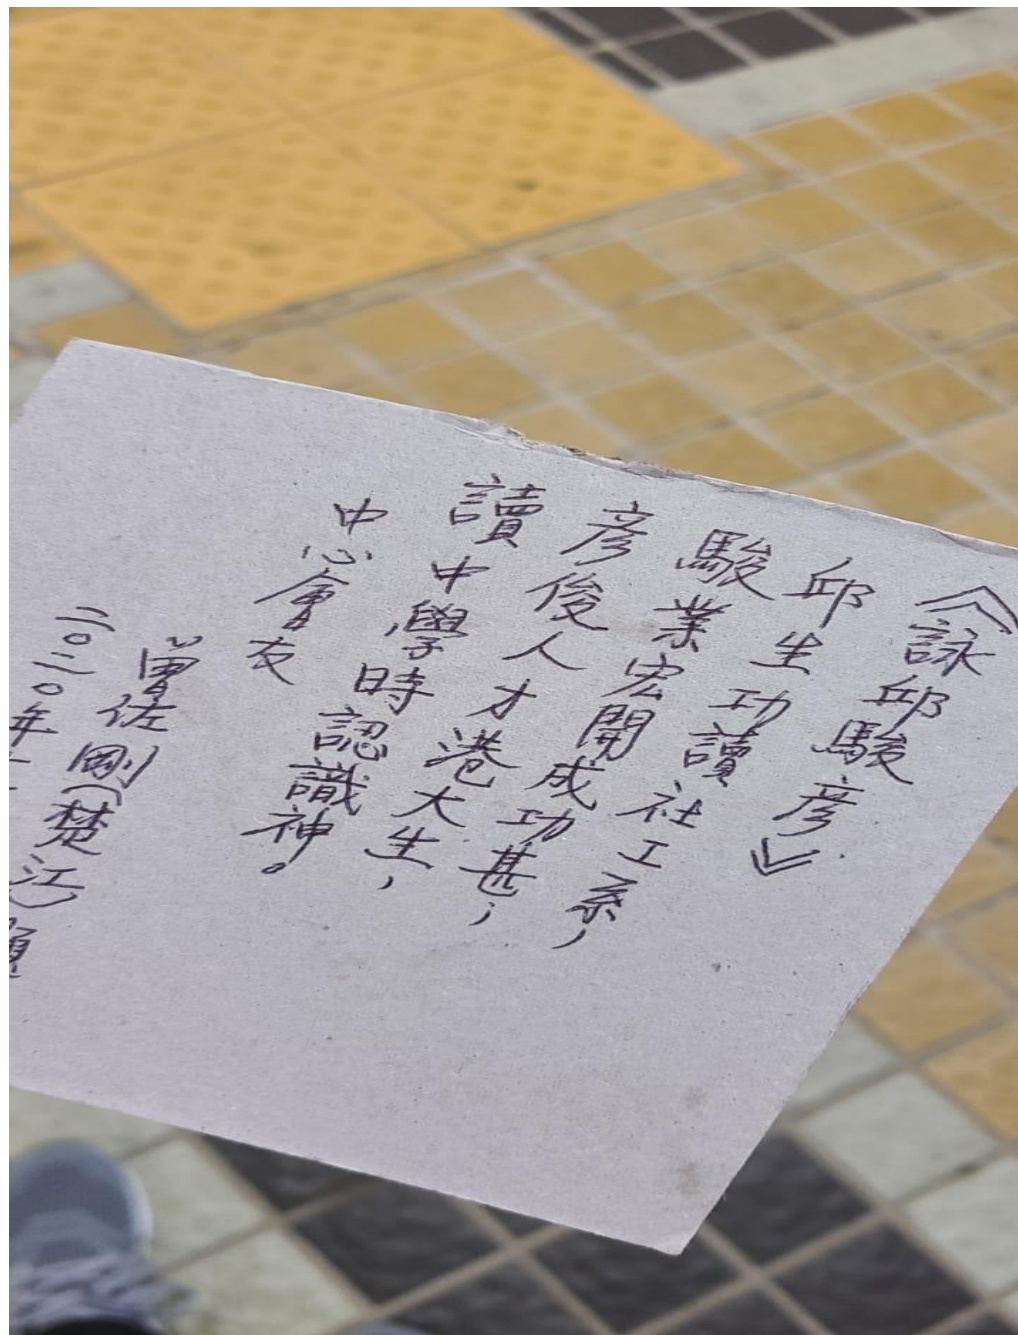 《詠邱駿彥》
邱生功讀社工系，
駿業宏開成功甚，
彥俊人才港大生，
讀中學時認識神。
中心會友
曾佐剛(楚江)
二〇二〇年